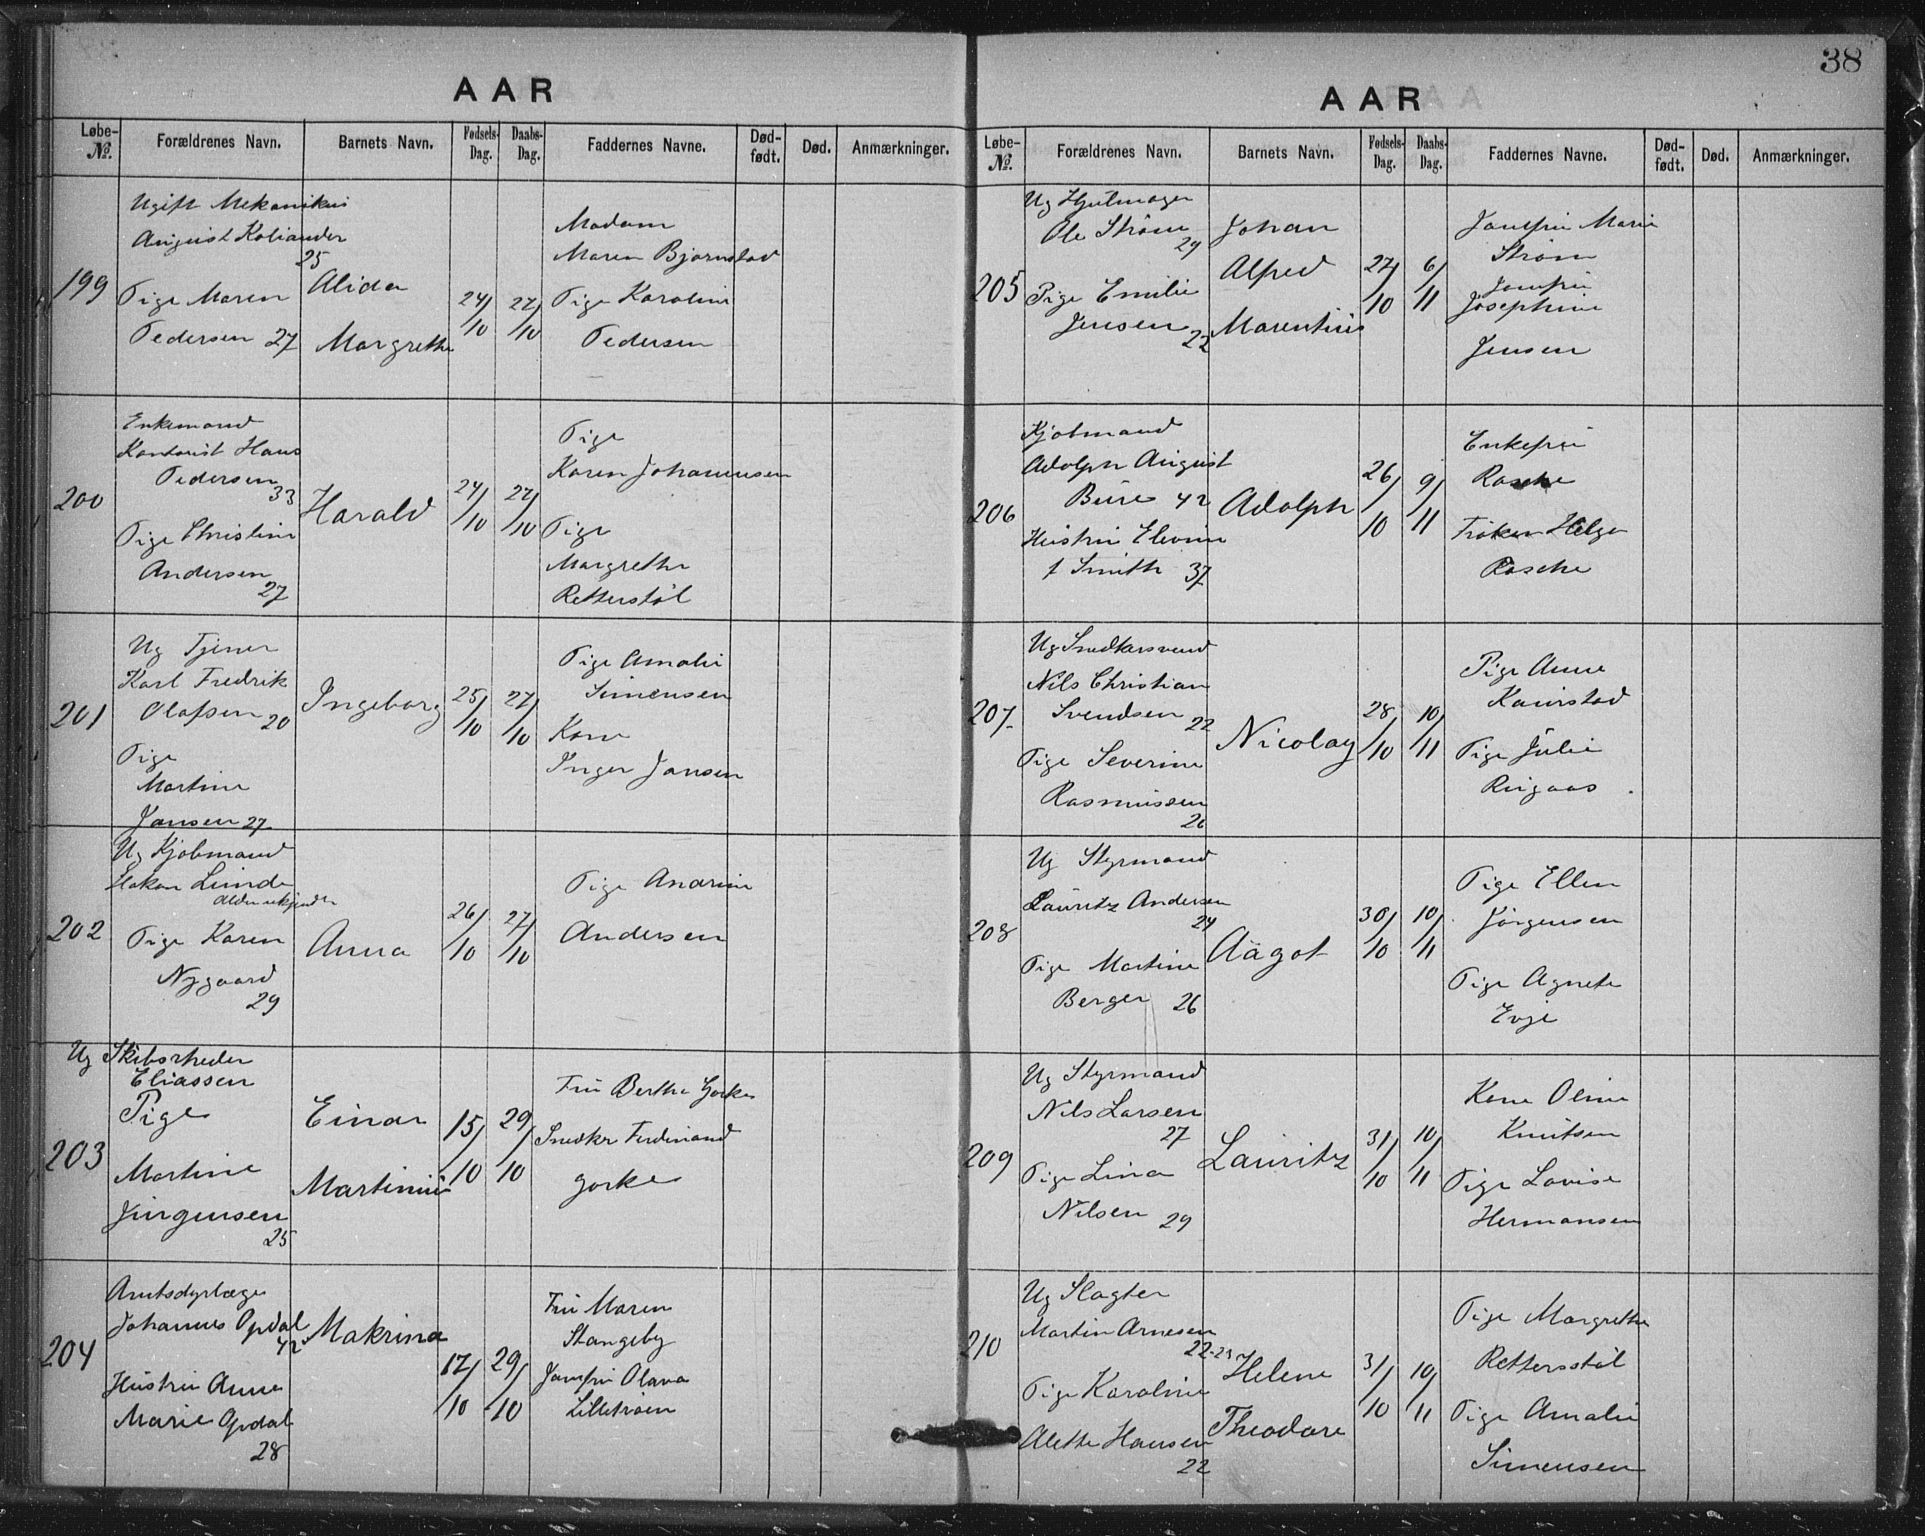 38
AAR
Løbe-No.
Forældrenes Navn.
Barnets Navn.
Fødsels-Dag.
Daabs-Dag.
Faddernes Navne.
Død-født.
Død.
Anmærkninger.
199
Ugift Mekanikus
August Koliander
25
Pige Maren
Pedersen 27
Alida
Margrethe
24/10
27/10
Madam
Maren Bjørnstad
Pige Karoline
Pedersen
200
Enkemand
Kontorist Hans
Pedersen
33
Pige Christine
Andersen
27
Harald
24/10
27/10
Pige
Karen Johannensen
Pige
Margrethe
Retterstøl
201
Ug Tjener
Karl Fredrik
Olafsen 20
Pige
Martine
Jansen 27
Ingeborg
25/10
27/10
Pige Amalie
Simensen
Kone
Inger Jansen
202
Ug Kjøbmand
Hakon Lunde
Alder ubekjendt
Pige Karen
Nygaard
29
Anna
26/10
27/10
Pige Andrine
Andersen
203
Ug Skibsrheder
Eliassen
Pige
Martine
Jürgensen
25
Einar
Martinius
15/10
29/10
Fru Bertha Gorke
Snedker Ferdinand
Gorke
204
Amtsdyrlæge
Johannes Opdal
42
Hustru Anne
Marie Opdal
28
Makrina
17/10
29/10
Fru Maren
Stangeby
Jomfru Olava
Lillestrøm
AAR
Løbe-No.
Forældrenes Navn.
Barnets Navn.
Fødsels-Dag.
Daabs-Dag.
Faddernes Navne.
Død-født.
Død.
Anmærkninger.
205
Ug Hjulmager
Ole Strøm
29
Pige Emilie
Jensen
22
Johan
Alfred
Marentius
27/10
6/11
Jomfru Marie
Strøm
Jomfru
Josephine
Jensen
206
Kjøbmand
Adolph August
Bure 42
Hustru Elevine
f Smith 37
Adolph
26/10
9/11
Enkefru
Rasche
Frøken Helga
Rasche
207
Ug Snedkersvend
Nils Christian
Svendsen 22
Pige Severine
Rasmussen
26
Nicolay
28/10
10/11
Pige Anne
Kaurstad
Pige Julie
Ringaas
208
Ug Styrmand
Lauritz Andersen
24
Pige Martine
Berger 26
Aagot
30/10
10/11
Pige Ellen
Jørgensen
Pige Agnete
Evje
209
Ug Styrmand
Nils Larsen
27
Pige Lina
Nilsen 29
Lauritz
31/10
10/11
Kone Oline
Knutsen
Pige Lovise
Hermansen
210
Ug Slagter
Martin Arnesen
22-23
Pige Karoline
Alette Hansen
22
Helene
Theodore
31/10
10/11
Pige Margrethe
Rettersstøl
Pige Amalie
Simensen